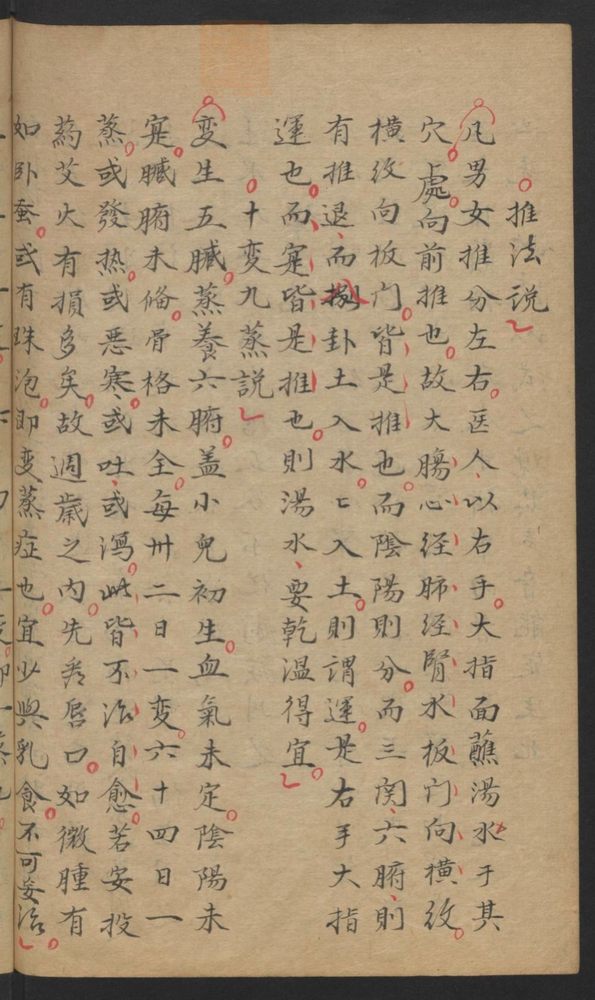 推法説
凡男女推分左右医人以右手大指面蘸湯水于其
穴處向前推也故大腸心經肺經腎水扳门向横紋
横紋向扳门皆是推也而陰陽則分而三関六腑則
有推退而捌卦土入水匕入土則謂運是右手大指
運也而寔皆是推也則湯水要乾温得宜
十変九蒸説
变生五臓蒸養六腑盖小兒初生血氣未定陰陽未
寔臓腑未俻骨格未全每卅二日一变六十四日一
蒸或發热或恶寒或吐或瀉此皆不治自愈若安投
药艾火有損多矣故週歳之内先看唇口如微腫有
如卧蚕或有珠泡即变蒸症也宜少與乳食不可妄治